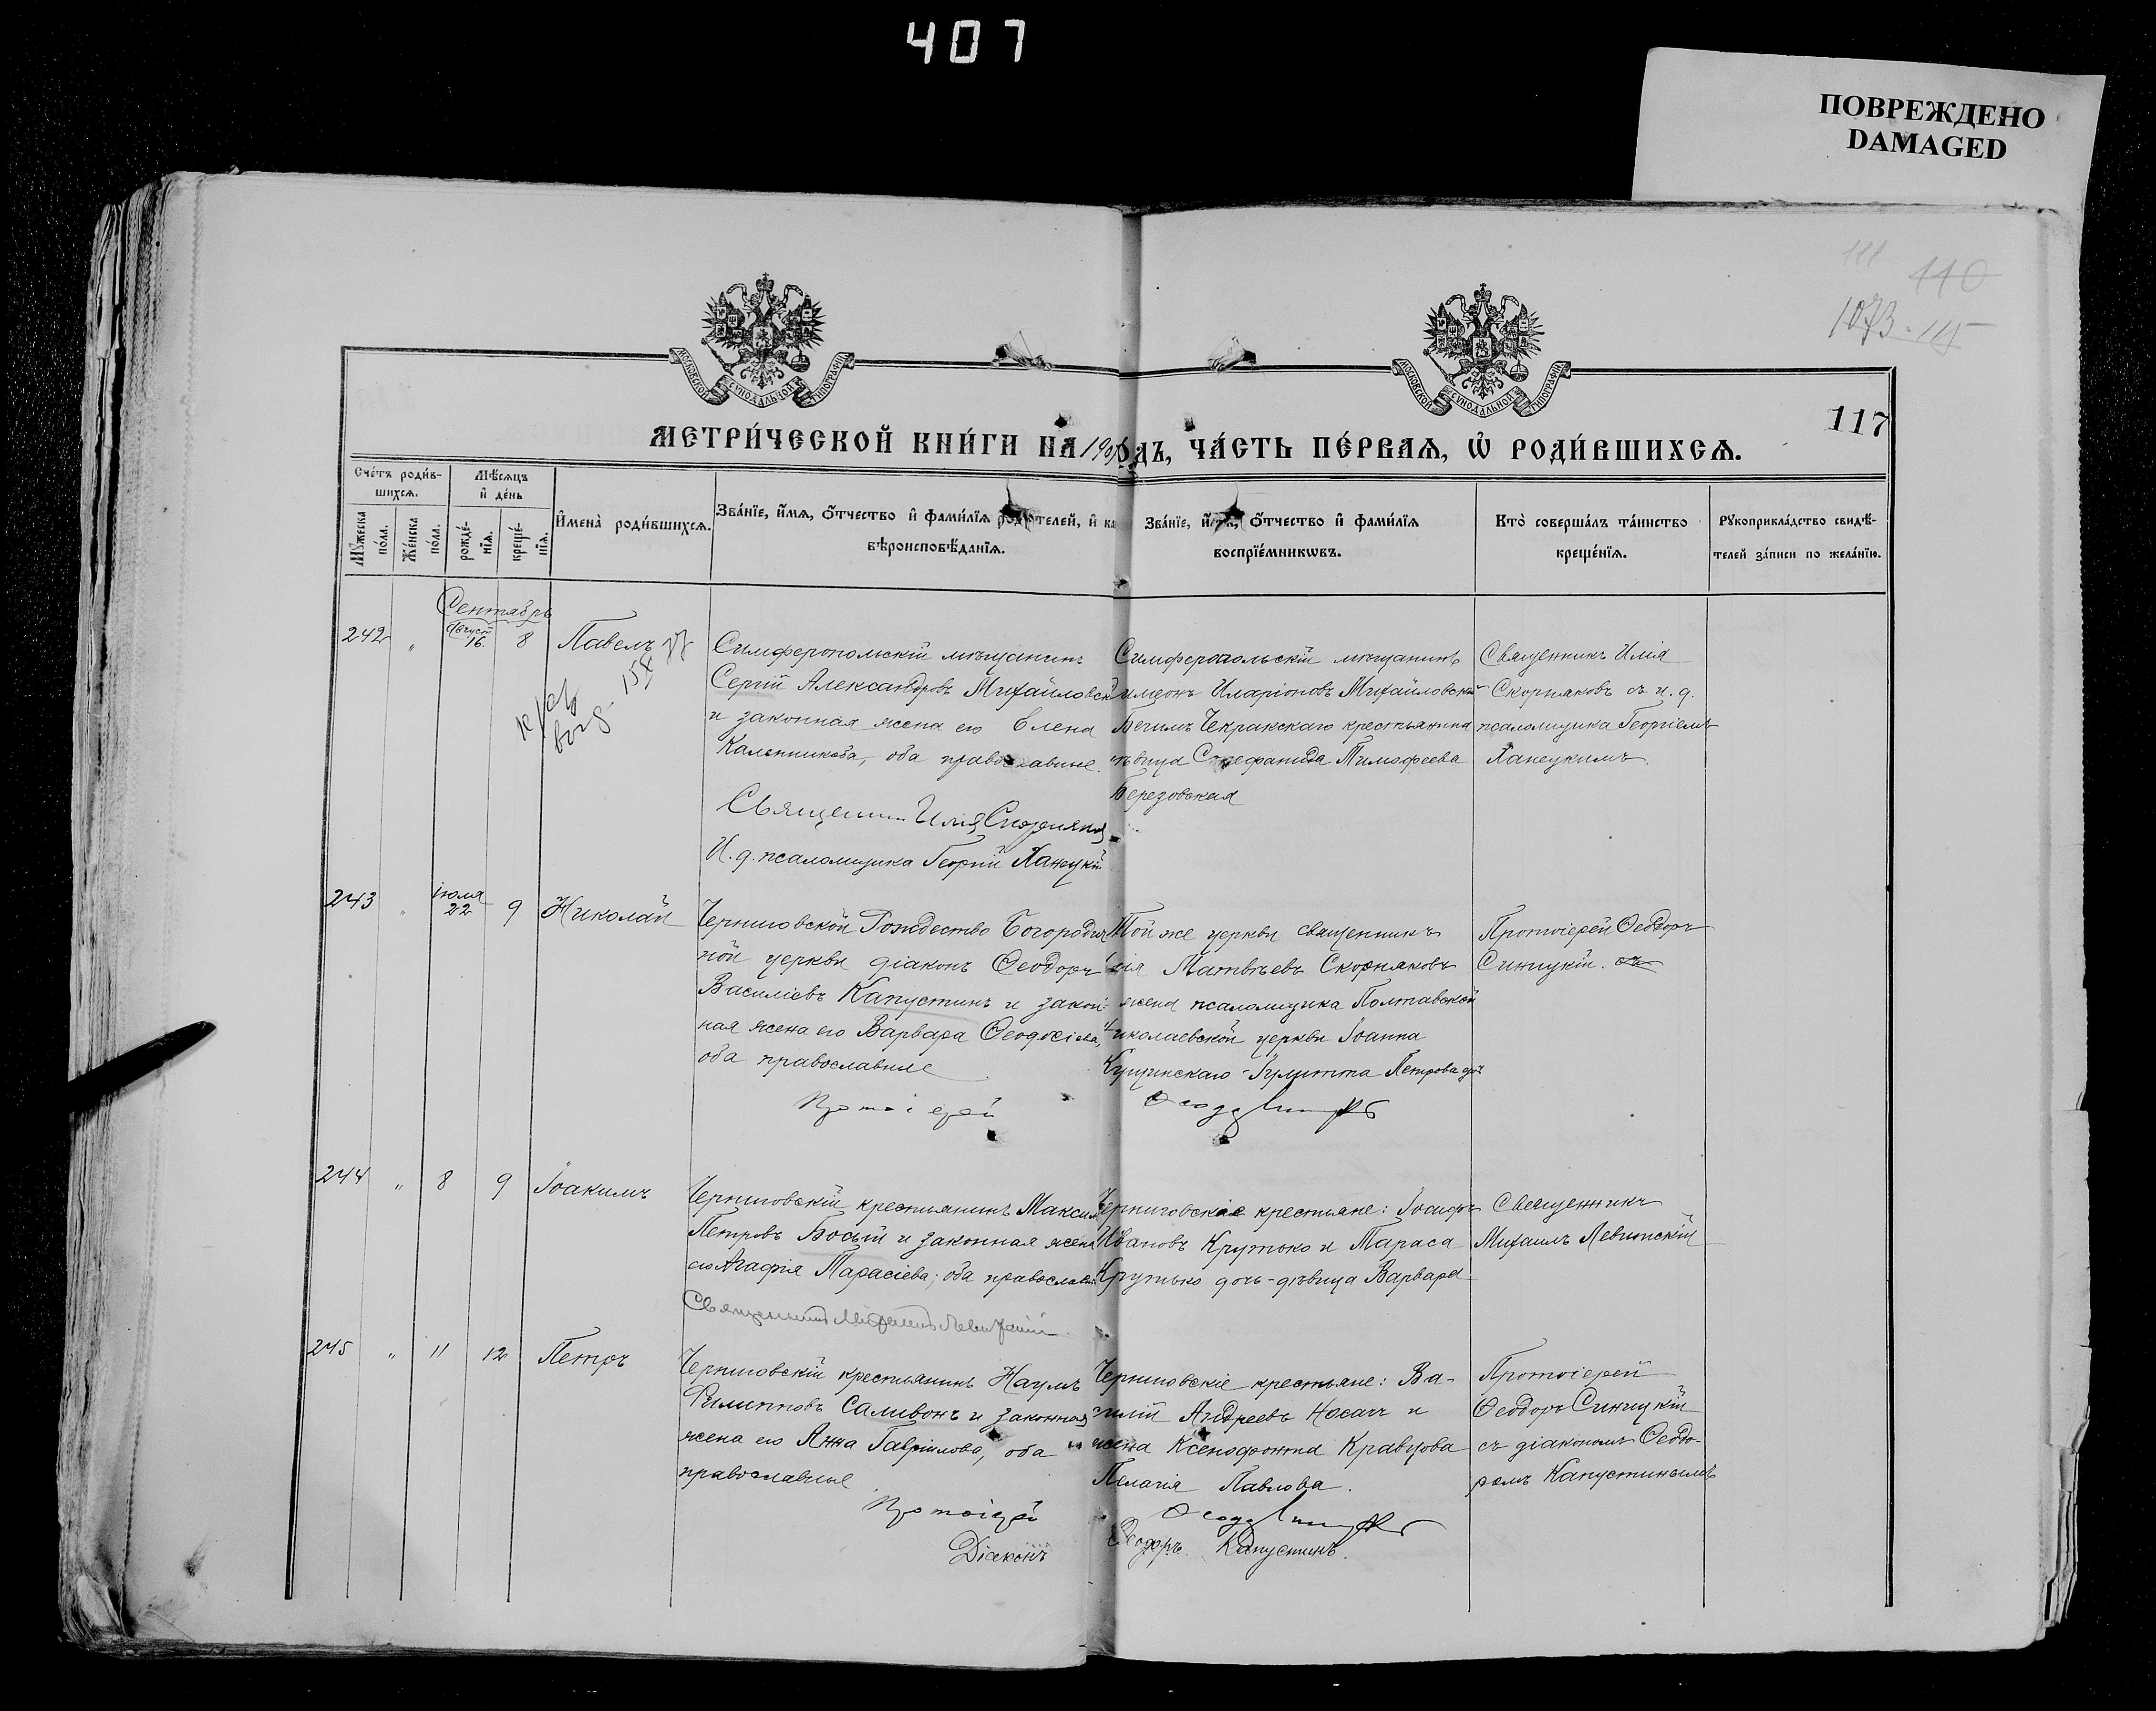 407
ПОВРЕЖДЕНО
DAMAGED
111 110
1073 - 115
МОСКОВСКОЙ СѴНОДАЛЬНОЙ ТИПОГРАФІИ
МОСКОВСКОЙ СѴНОДАЛЬНОЙ ТИПОГРАФІИ
117
МЕТРИ́ЧЕСКОЙ КНИ́ГИ НА 190 ДЪ, ЧА́СТЬ ПЕ́РВАѦ, Ѡ҆ РОДИ́ВШИХСѦ.
Сче́тъ роди́в-
шихсѧ.
Мѣ́сѧцъ
и҆ де́нь
Мꙋ́жеска
по́ла.
Же́нска
по́ла.
рожде́-
нїѧ.
креще́-
нїѧ.
И҆мена̀ роди́вшихсѧ.
Зва́нїе, и҆́мѧ, ѻ҆́тчество и҆ фами́лїѧ роди́телей, и҆ ка
вѣроисповѣ́данїѧ.
Зва́нїе, и҆́мѧ, ѻ҆́тчество и҆ фами́лїѧ
воспрїе́мникѡвъ.
Кто̀ соверша́лъ та́инство
креще́нїѧ.
Рꙋкоприкла́дство свидѣ́-
телей за́писи по жела́нїю.
Сентябрь
242 " Август 16. 8 Павелъ
Симферопольскій мѣщанинъ
Сергій Александровъ Михайловскій
и законная жена его Елена
Каленникова, оба православные.
Священникъ Илія Скорняковъ
И. д. псаломщика Георгій Ханецкій
Симферопольскій мѣщанинъ
Симеонъ Иларіоновъ Михайловскій
Бегимъ Чекракскаго крестьянина
дѣвица Стефанида Тимофеева
Березовская
Священникъ Илія
Скорняковъ съ и. д.
псаломщика Георгіемъ
Ханецкимъ.
243 " іюля 22 9 Николай
Черниговской Рождество Богородич
ной церкви діаконъ Ѳеодоръ
Василіевъ Капустинъ и закон
ная жена его Варвара Ѳеодосіева,
оба православные
Протоіерей
Той же церкви священникъ
Илія Матвѣевъ Скорняковъ
жена псаломщика Полтавской
Николаевской церкви Іоанна
Іулитта Петрова
Протоіерей Ѳеодоръ
Синицкій. съ
244 " 8 9 Іоакимъ
Черниговскій крестьянинъ Максимъ
Петровъ Босый и законная жена
его Агафія Тарасіева; оба православн
Священникъ Михаилъ Левитскій
Черниговскіе крестьяне: Іосифъ
Ивановъ Крутько и Тараса
Крутько дочь-дѣвица Варвара
Священникъ
Михаилъ Левитскій
245 " 11 12 Петръ
Черниговскій крестьянинъ Наумъ
Филипповъ Саливонъ и законная
жена его Анна Гавріилова, оба
православные
Протоіерей
Діаконъ
Черниговскіе крестьяне: Ва-
силій Андреевъ Носачъ и
жена Ксенофонта Кравцова
Пелагія Павлова.
Ѳеодоръ Капустинъ.
Протоіерей
Ѳеодоръ Синицкій
съ діакономъ Ѳеодо-
ромъ Капустинымъ